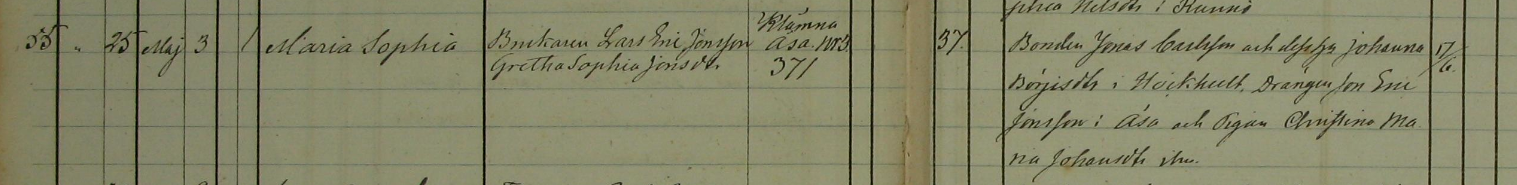 phia Nilsdtr i
55 " 25 Maj 3 1 Maria Sophia Brukaren Lars Eric Jonsson Klämna Åsa No 3 37. Bonden Jonas Carlsson och dess hu Johanna 17/6.
Gretha Sophia Jonsdr 371 Börjesdtr i Höckhult, Drängen Jon Eric
Jonsson i Åsa och Pigan Christina Ma
ria Johansdtr ibm.